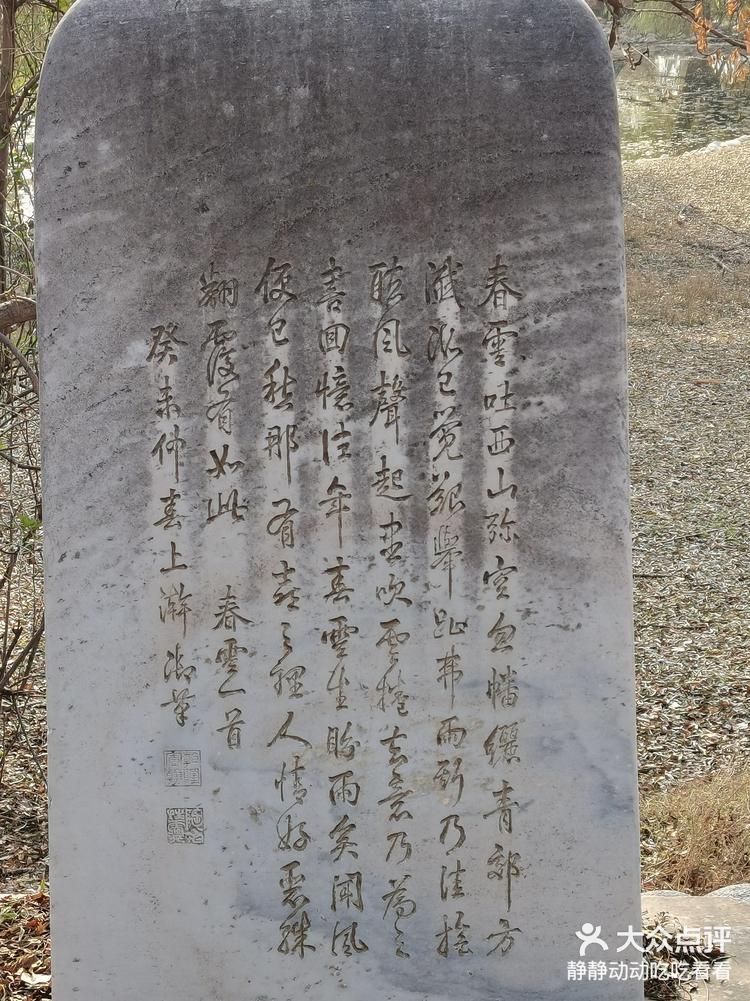 春雲吐西山弥空忽幡纚青郊方
瀸泥已覺艱舉趾弗雨斯乃佳
聒風聲起盡吹雲捲去意乃為之
喜回憶往年春雲生盼雨矣聞風
便已愁那有喜之理人情好惡殊
翻覆有如此 春雲一首
癸未仲春上澣御筆
大众点评
静静动动吃吃看看